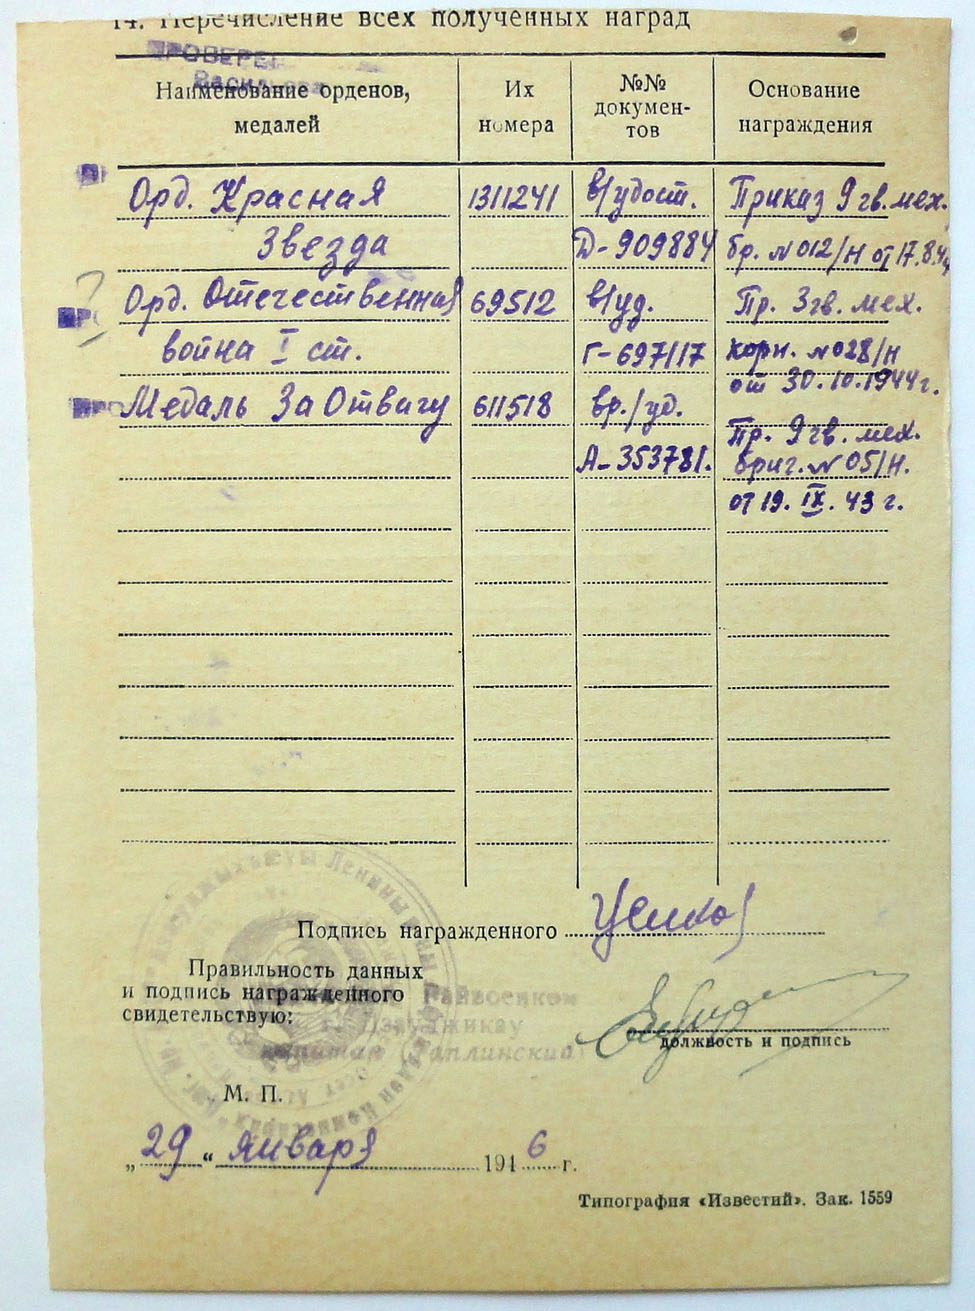 14. Перечисление всех полученных наград
ПРОВЕРЕ
Васильева
Наименование орденов, медалей
Их номера
№№ документов
Основание награждения
Орд. Красная 1311241 в/удост. Приказ 9 гв. мех.
Звезда Д-909884 бр. №012/Н от 17.8.44
Орд. Отечественная 69512 в/уд. Пр. 3 гв. мех.
война I ст. Г-697117 корп. №028/Н
от 30.10.1944 г.
Медаль За Отвагу 611518 вр./уд.
Пр. 9 гв. мех.
А-353781. бриг. №05/Н.
от 19. IX. 43 г.
Подпись награжденного
Правильность данных
и подпись награжденного
свидетельствую:
Райвоенком
г. Дзауджикау
капитан
должность и подпись
М. П.
„29“ января 1946 г.
Типография «Известий». Зак. 1559